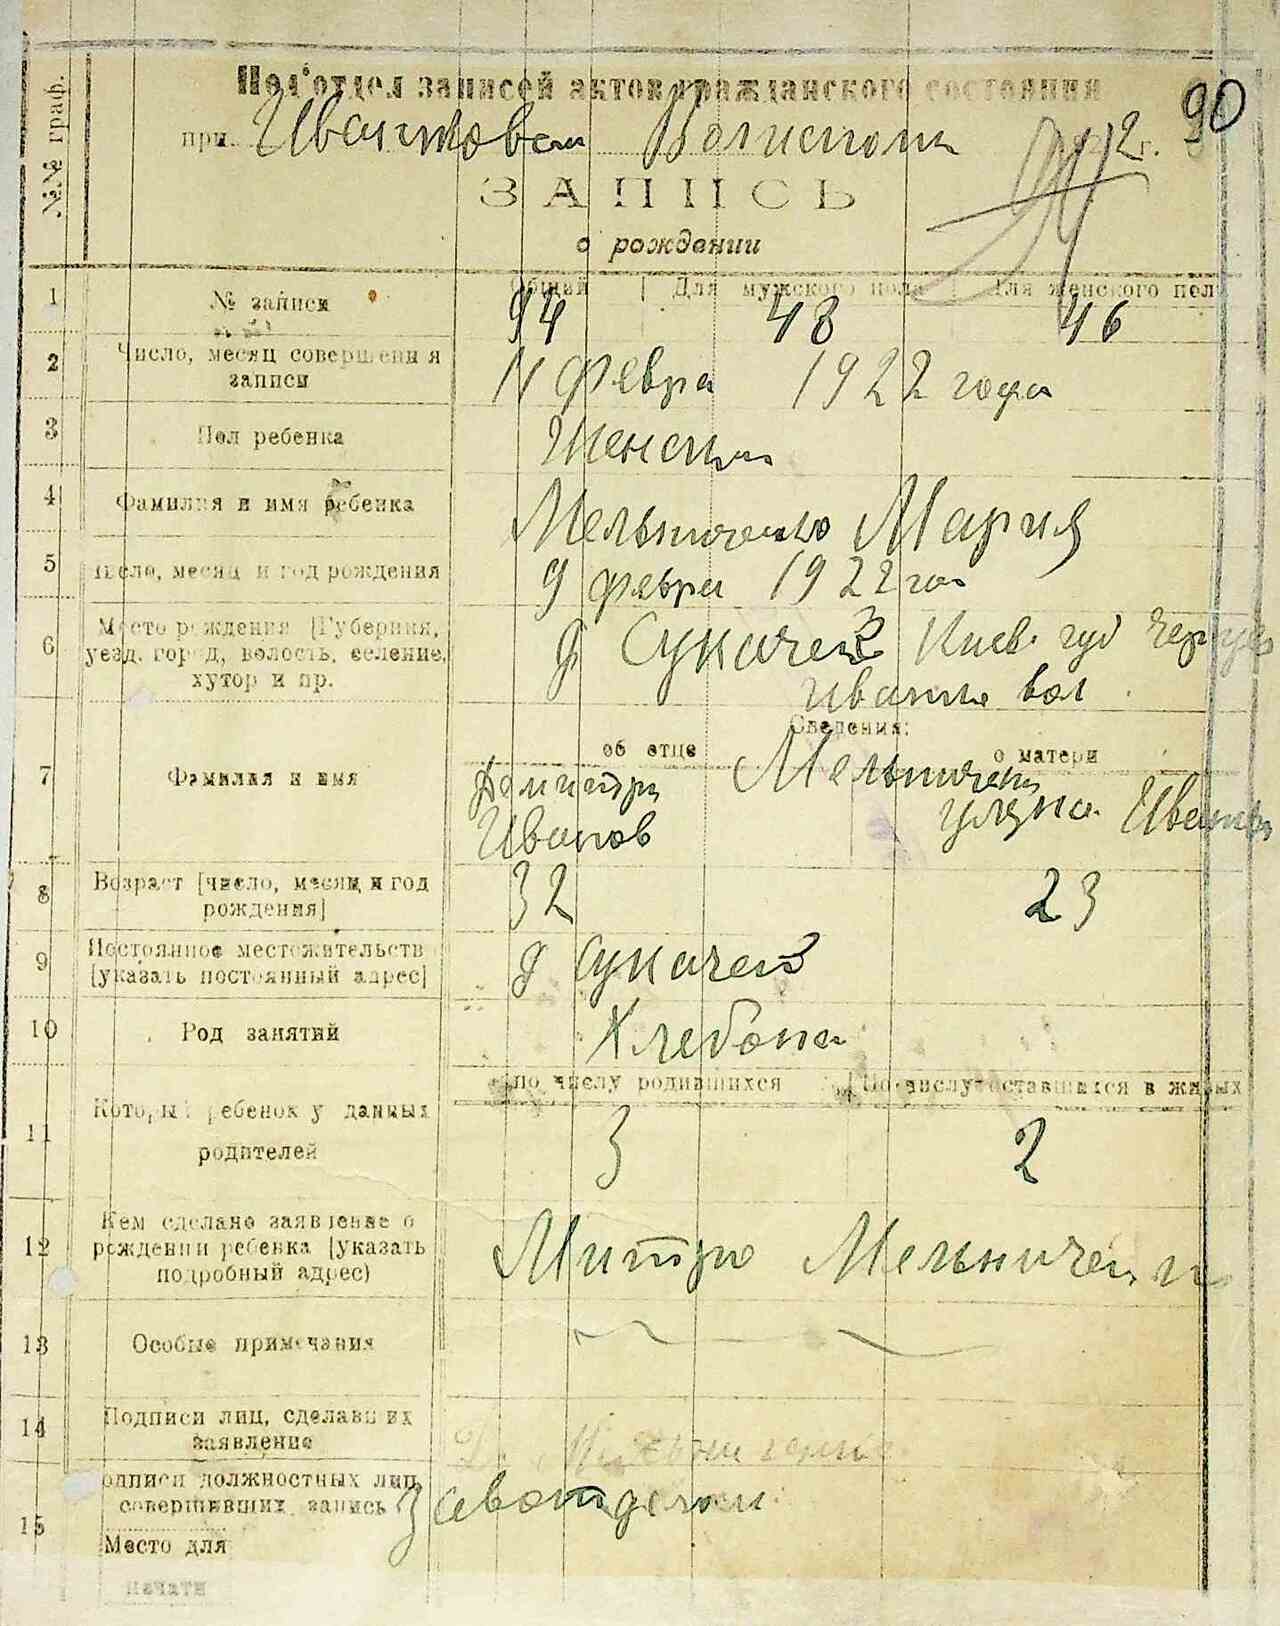 90
№№ граф.
Под'отдел записей актов гражданского состояния
при Волиспом 2 г.
ЗАПИСЬ
о рождении
1 № записи
Общий Для мужского пола Для женского пол
94 48 46
2 Число, месяц совершения записи
11 февра 1922 года
3 Пол ребенка
Женски
4 Фамилия и имя ребенка
Мельниченко Мария
5 Число, месяц и год рождения
9 февра 1922 год
6 Место рождения [Губерния,
уезд, город, волость, селение,
хутор и пр.
Сукачев Киев. губ Чер
вол
Сведения:
об отце о матери
7 Фамилия и имя
Мельничен
Димитри
Иванов
8 Возраст [число, месяц и год
рождения]
32 23
9 Постоянное местожительств
[указать постоянный адрес]
Сукачев
10 Род занятий
Хлебопа
по числу родившихся По числу оставшихся в живых
11 Который ребенок у данных
родителей
3 2
12 Кем сделано заявление о
рождении ребенка [указать
подробный адрес)
Митро Мельничен
13 Особые примечания
14 Подписи лиц, сделавших
заявление
15 одписи должностных лиц,
совершивших запись
Завотдел
Место для
печати